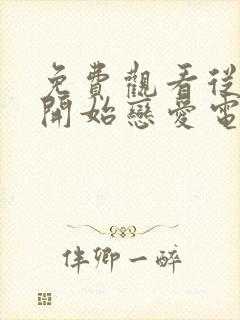 免費觀看從
開始戀愛電
伴卿一醉